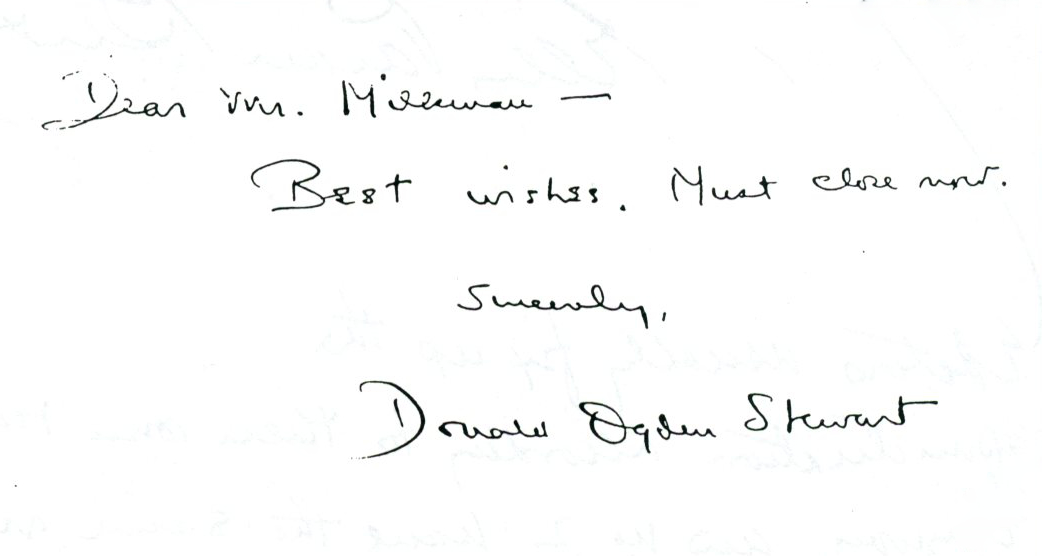 Dear Mr. Milleman —
Best wishes. Must close now.
Sincerely,
Donald Ogden Stewart